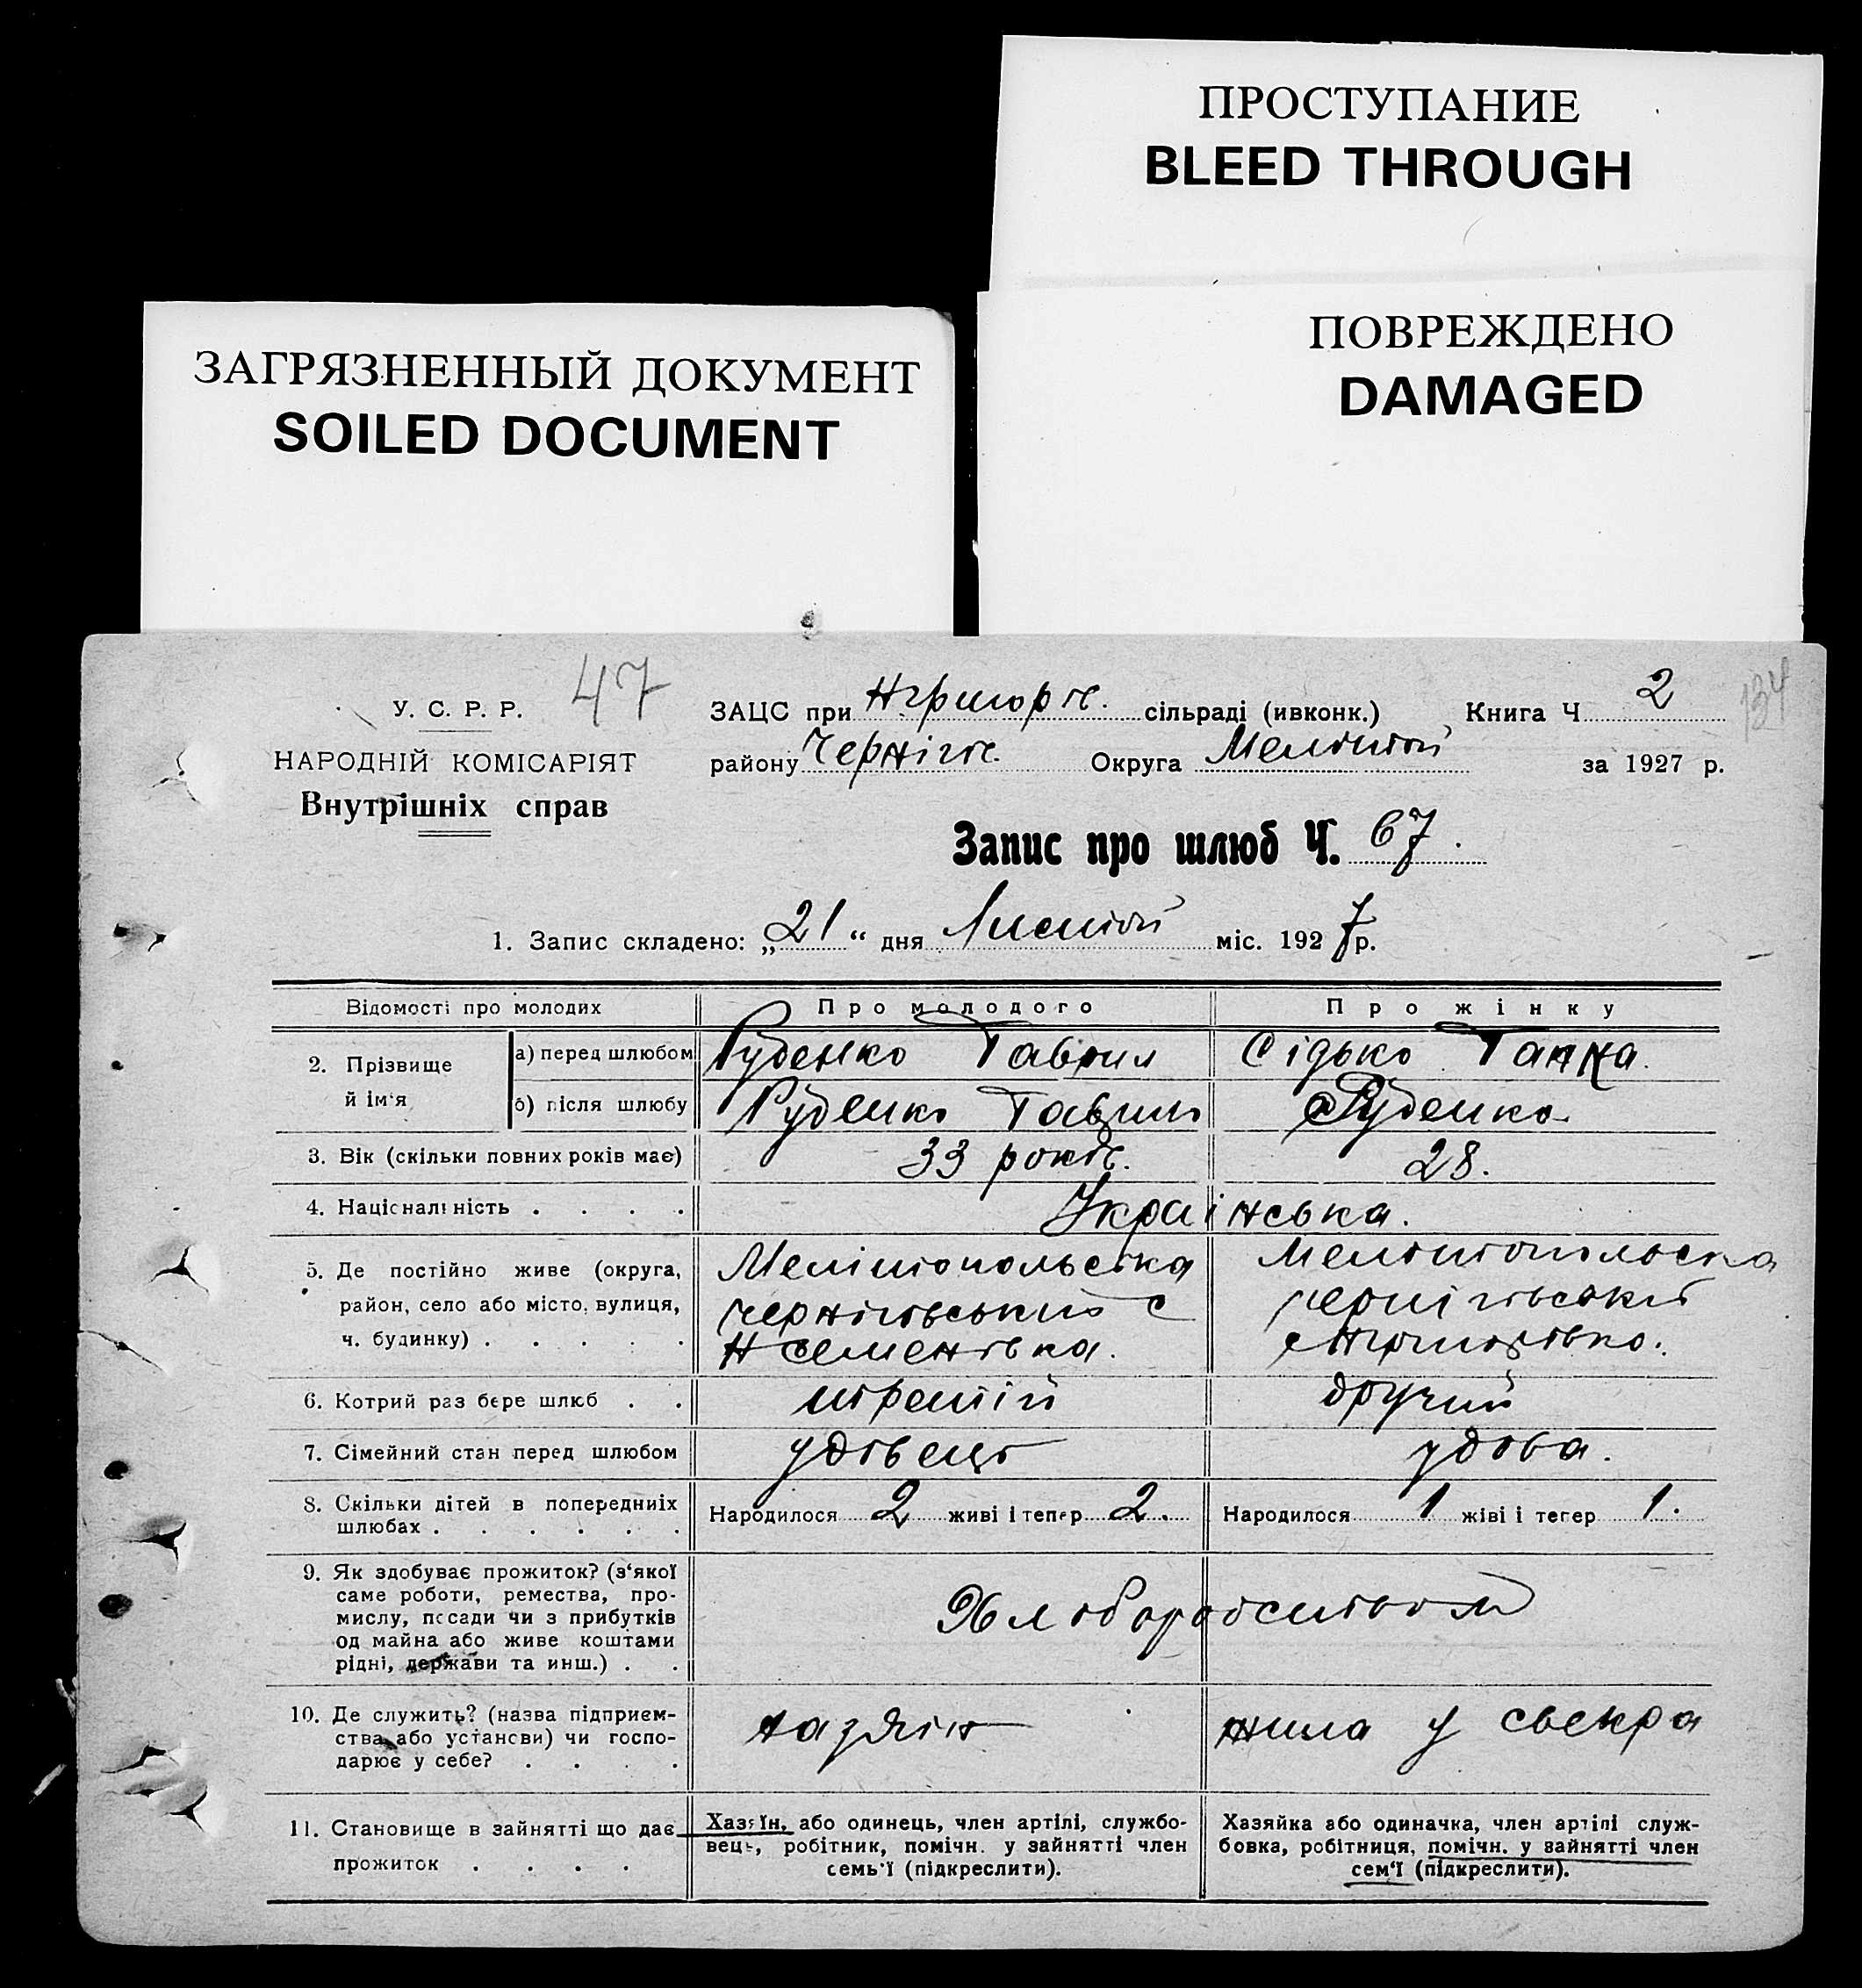 ПРОСТУПАНИЕ
BLEED THROUGH
ПОВРЕЖДЕНО
DAMAGED
ЗАГРЯЗНЕННЫЙ ДОКУМЕНТ
SOILED DOCUMENT
47
134
У. С. Р. Р.
НАРОДНІЙ КОМІСАРІЯТ
Внутрішніх справ
ЗАЦС при сільраді (ивконк.) Книга Ч 2
району Чернігів. Округа Мелітоп за 1927 р.
Запис про шлюб Ч. 67.
1. Запис складено: „21“ дня Листоп міс. 1927 р.
Відомості про молодих Про молодого Про жінку
2. Прізвище й ім'я
а) перед шлюбом Руденко Гаврил Сідько Ганна.
б) після шлюбу Руденко Гаврило Руденко
3. Вік (скільки повних років має) 33 років. 28.
4. Національність . . . . Українська.
5. Де постійно живе (округа, Мелітопольська Мелітопольска
район, село або місто, вулиця, Чернігівський с Чернігівський
ч. будинку) . . . . . Н Семенівка.
6. Котрий раз бере шлюб . . третій другий
7. Сімейний стан перед шлюбом удівець удова.
8. Скільки дітей в попередниіх Народилося 2 живі і тепер 2. Народилося 1 жіві і тепер 1.
шлюбах . . . . . .
9. Як здобуває прожиток? (з'якої
саме роботи, ремества, про-
мислу, посади чи з прибутків Хліборобством
од майна або живе коштами
рідні, держави та инш.) . .
10. Де служить? (назва підприєм-
ства або установи) чи госпо- хазяін жила у свекра
дарює у себе? . . . .
11. Становище в зайнятті що дає
прожиток . . . .
Хазяїн, або одинець, член артілі, службо-
вець, робітник, помічн. у зайнятті член
семь'ї (підкреслити).
Хазяйка або одиначка, член артілі служ-
бовка, робітниця, помічн. у зайнятті член
сем'ї (підкреслити).